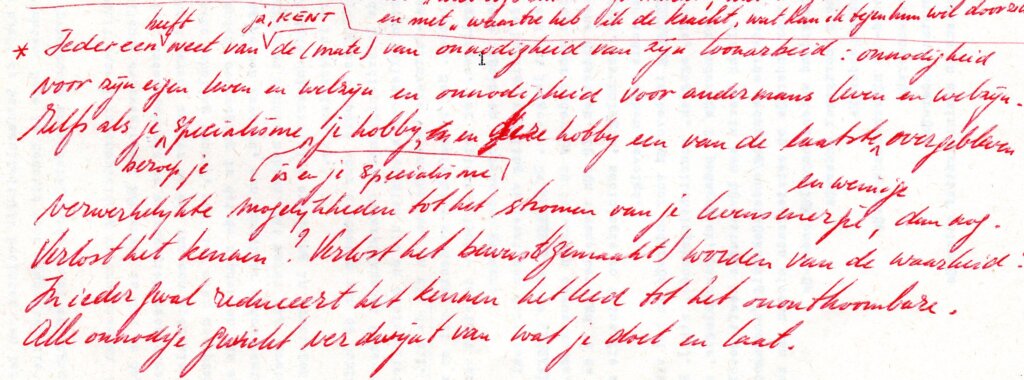 heeft ja, KENT
en met „waartoe heb ik de kracht, wat kan ik tegen hun wil
* Iedereen weet van de (mate) van onnodigheid van zijn loonarbeid: onnodigheid
voor zijn eigen leven en welzijn en onnodigheid voor andermans leven en welzijn.
Zelfs als je specialisme je hobby, en deze hobby een van de laatste overgebleven
beroep je is en je specialisme
en weinige
verwerkelijkte mogelijkheden tot het stromen van je levensenergie, dan nog.
Verlost het kennen? Verlost het bewust (gemaakt) worden van de waarheid?
In ieder geval reduceert het kennen het leed tot het onontkoombare.
Alle onnodige gewicht verdwijnt van wat je doet en laat.